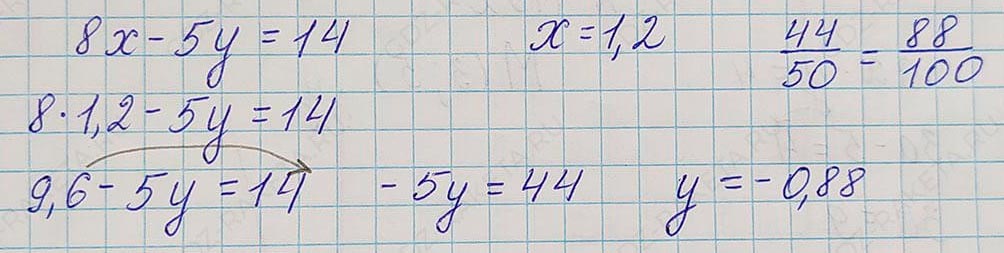 8x - 5y = 14    x = 1,2    44/50 = 88/100
8 · 1,2 - 5y = 14
9,6 - 5y = 14    - 5y = 44    y = - 0,88